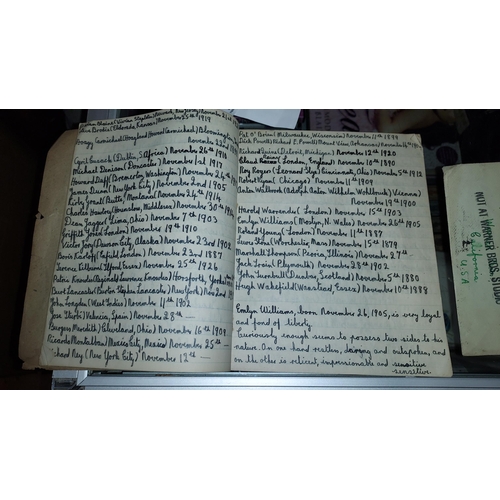 Steve Brodie (Eldorado, Kansas) November 25th 1919
Hoagy Carmichael (Hoagland Howard Carmichael) Bloomington
November 22nd 1899
Cyril Cusack (Durban, S. Africa) November 26th 1910
Michael Denison (Doncaster) November 1st 1917
Howard Duff (Bremerton, Washington) November 24th
James Dunn (New York City) November 2nd 1905
Kirby Grant (Butte, Montana) November 24th 1914
Charles Hawtrey (Hounslow, Middlesex) November 30th
Dean Jagger (Lima, Ohio) November 7th 1903
Griffith Jones (London) November 19th 1910
Victor Jory (Dawson City, Alaska) November 23rd 1902
Boris Karloff (Enfield London) November 23rd 1887
Terence Kilburn (Essex) November 25th 1926
Patric Knowles (Reginald Lawrence Knowles) Horsforth, Yorkshire
Burt Lancaster (Burton Stephen Lancaster) New York) Nov 2nd
John Langdon (West Indies) November 11th 1902
Jose Iturbi (Valencia, Spain) November 28 —
Burgess Meredith (Cleveland, Ohio) November 16th 1908
Ricardo Montalban (Mexico City, Mexico) November 25
Richard Ney (New York City) November 12 —
Pat O'Brien (Milwaukee, Wisconsin) November 11th 1899
Dick Powell (Richard E. Powell) Mount View, Arkansas) November 14th
Richard Quine (Detroit, Michigan) November 12th 1920
Claude Rains (London, England) November 10th 1890
Roy Rogers (Leonard Slye) Cincinnati, Ohio) November 5th 1912
Robert Ryan (Chicago) November 11th 1909
Anton Walbrook (Adolph Anton Wilhelm Wohlbruck) Vienna)
November 19th 1900
Harold Warrender (London) November 15th 1903
Emlyn Williams (Mostyn, N. Wales) November 26th 1905
Roland Young (London) November 11th 1887
Lewis Stone (Worchester, Mass) November 15th 1879
Marshall Thompson (Peoria, Illinois) November 27th
Jack Train (Plymouth) November 28th 1902
John Turnbull (Dunbar, Scotland) November 5th 1880
Hugh Wakefield (Wanstead, Essex) November 10th 1888
Emlyn Williams, born November 26, 1905, is very loyal
and fond of liberty
Curiously enough seems to possess two sides to his
nature. On one hand restless, driving and outspoken, and
on the other is reticent, impressionable and sensitive
-sensitive.
NOT AT WARNER BROS. STUDIO
California
U.S.A